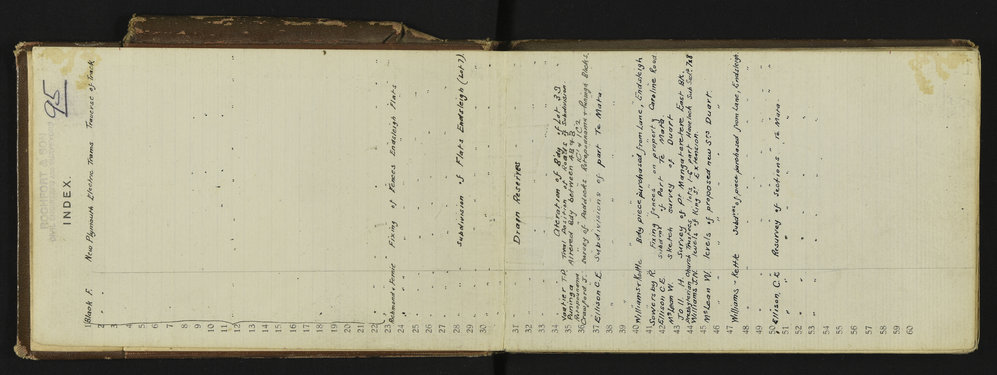 95
INDEX.
1 Black F. New Plymouth Electric Trams Traverse of Track
2
3
4
5
6
7
8
9
10
11
12
13
14
15
16
17
18
19
20
21
22
23 Richmond & Fannin Fixing of Fences Endsleigh Flats
24
25
26
27
28 Subdivision of Flats Endsleigh (Lot 7).
29
30
31 Drain Reserves
32
33
34 Alteration of Bdy of Lot 33
35 Trial Position of Roads of Subdivision
Altered Bdy between
36 Crawford J. Survey of Paddocks
37 Ellison C. E. Subdivisions of part Te Mata
38
39
40 Williams & Kettle Bdy piece purchased from Lane, Endsleigh
41 Sowersby R. Fixing fences on property Caroline Road
42 Ellison C E Subdvn of Part Te Mata
McLean W. Sketch survey of Duart
43 Joll H. Survey of Pt Mangateretere East Bk.
44 Presbyterian Church Trustees part Havelock Sub Secs 7 & 8
Williams J. N. levels of King St Extension.
45 McLean W. levels of proposed new Sts Duart.
46
47 Williams & Kettle Subdvn of piece purchased from Lane, Endsleigh.
48
49
50 Ellison, C. E Resurvey of Sections Te Mata
51
52
53
54
55
56
57
58
59
60